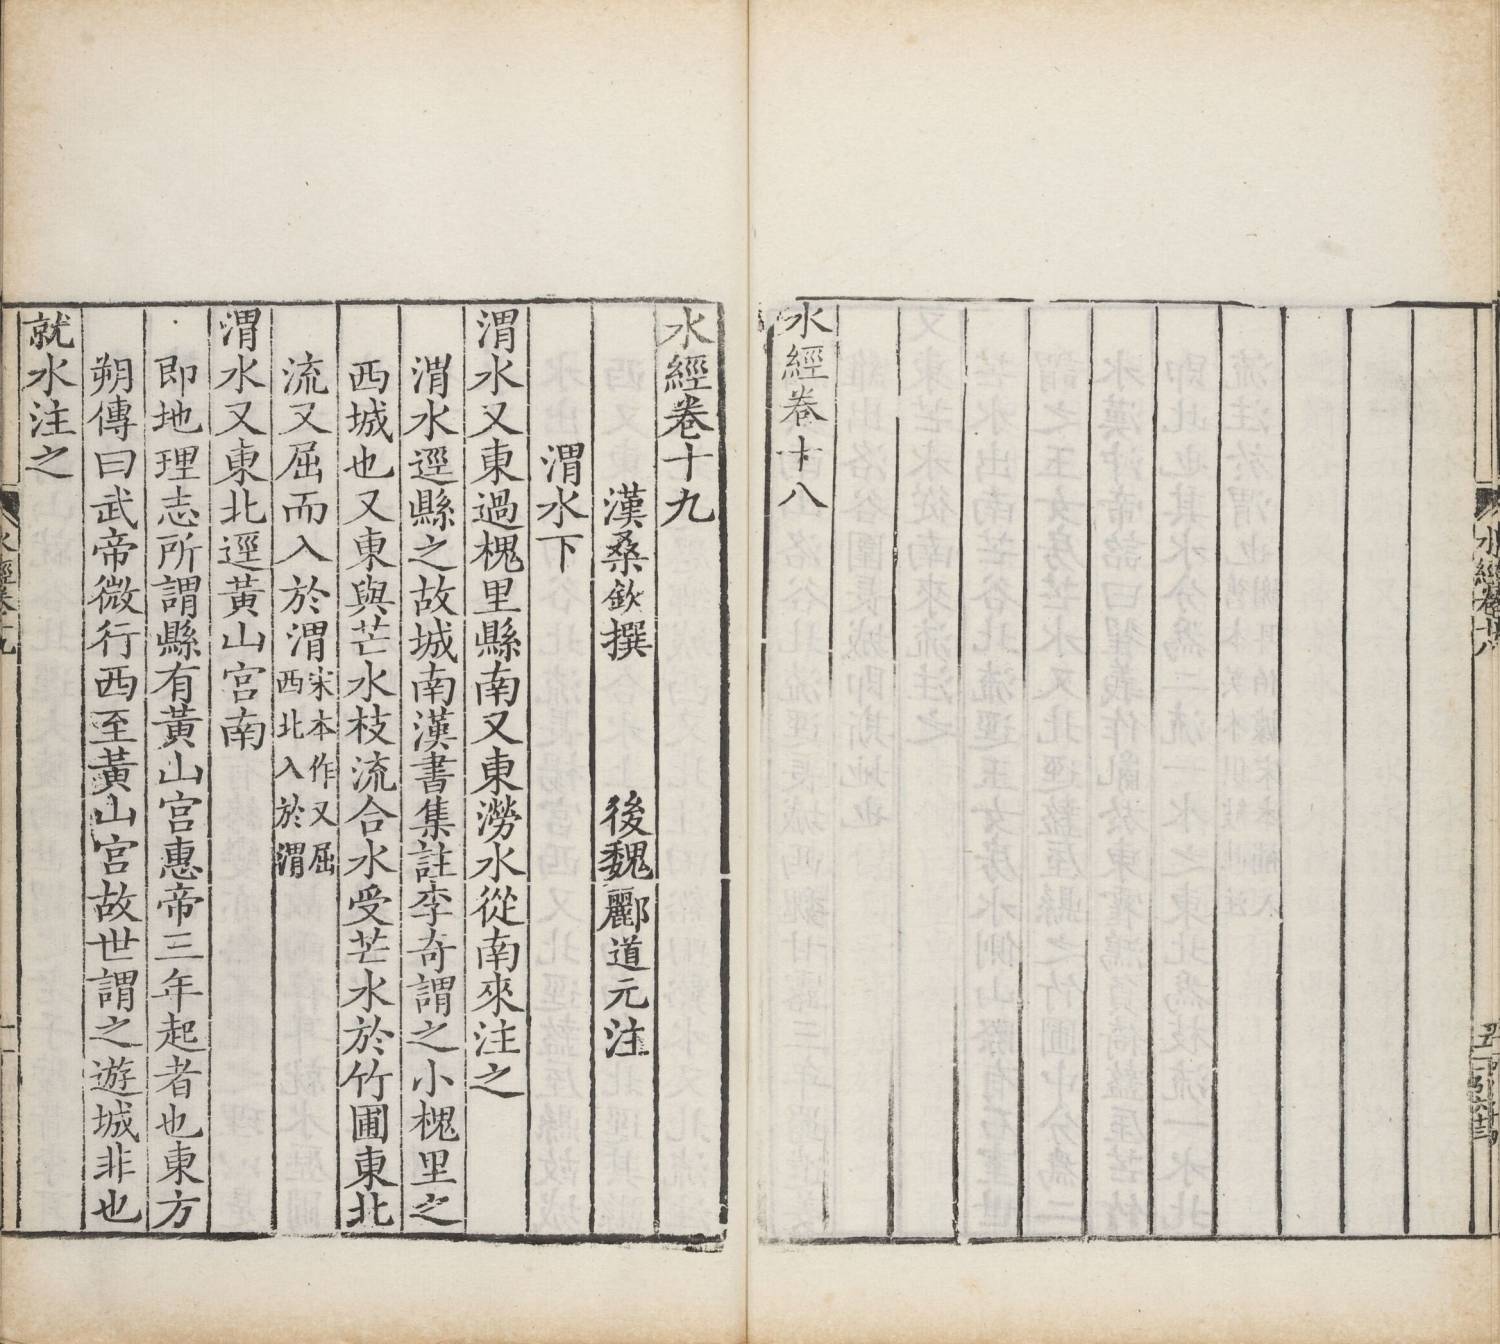 水經卷十八
水經卷十九
漢桑欽撰　後魏酈道元注
渭水下
渭水又東過槐里縣南又東澇水從南來注之
渭水逕縣之故城南漢書集註李奇謂之小槐里之
西城也又東與芒水枝流合水受芒水於竹圃東北
流又屈而入於渭宋本作又屈西北入於渭
渭水又東北逕黃山宮南
即地理志所謂縣有黃山宮惠帝三年起者也東方
朔傳曰武帝微行西至黃山宮故世謂之遊城非也
就水注之
水經卷十九
一
水經卷十八